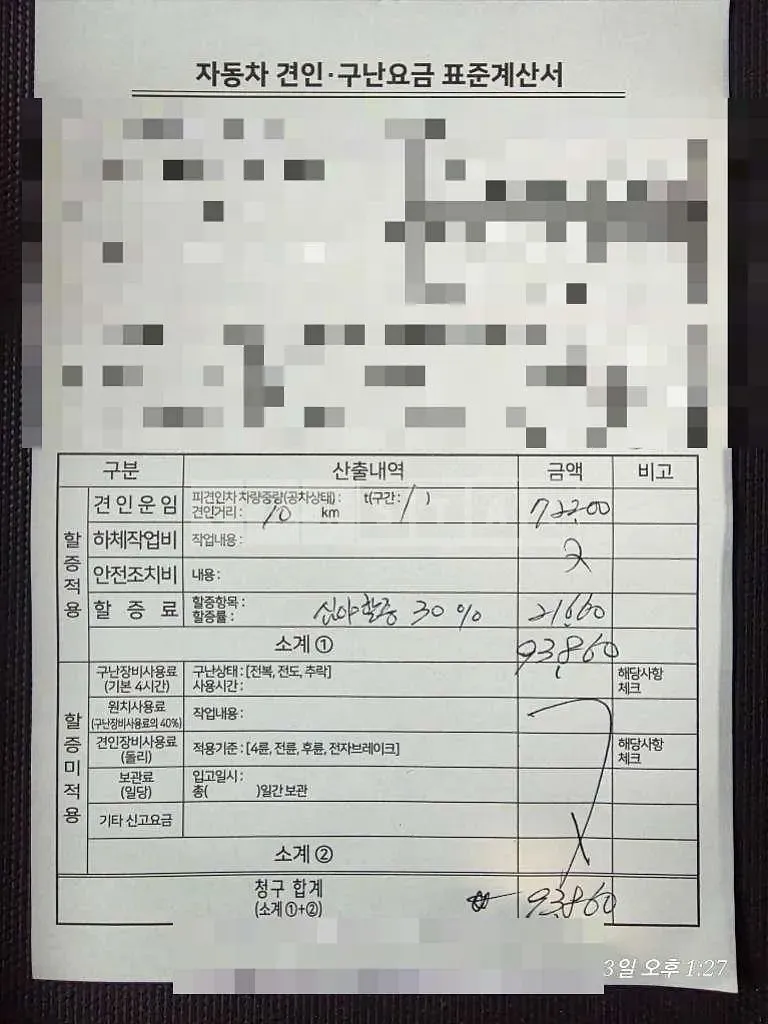 자동차 견인·구난요금 표준계산서
구분 산출내역 금액 비고
할증적용
견인운임 피견인차 차량중량(공차상태) : t(구간 : / ) 72200
견인거리 : 10 km
하체작업비 작업내용 :
안전조치비 내용 :
할증료 할증항목 : 심야할증 30% 21,660
할증률 :
소계 ① 93,860
할증미적용
구난장비사용료 구난상태 : [전복, 전도, 추락] 해당사항
(기본 4시간) 사용시간 : 체크
원치사용료 작업내용 :
(구난장비사용료의 40%)
견인장비사용료 적용기준 : [4륜, 전륜, 후륜, 전자브레이크] 해당사항
(돌리) 체크
보관료 입고일시 :
(일당) 총( )일간 보관
기타 신고요금
소계 ②
청구 합계 93,860
(소계 ①+②)
3일 오후 1:27